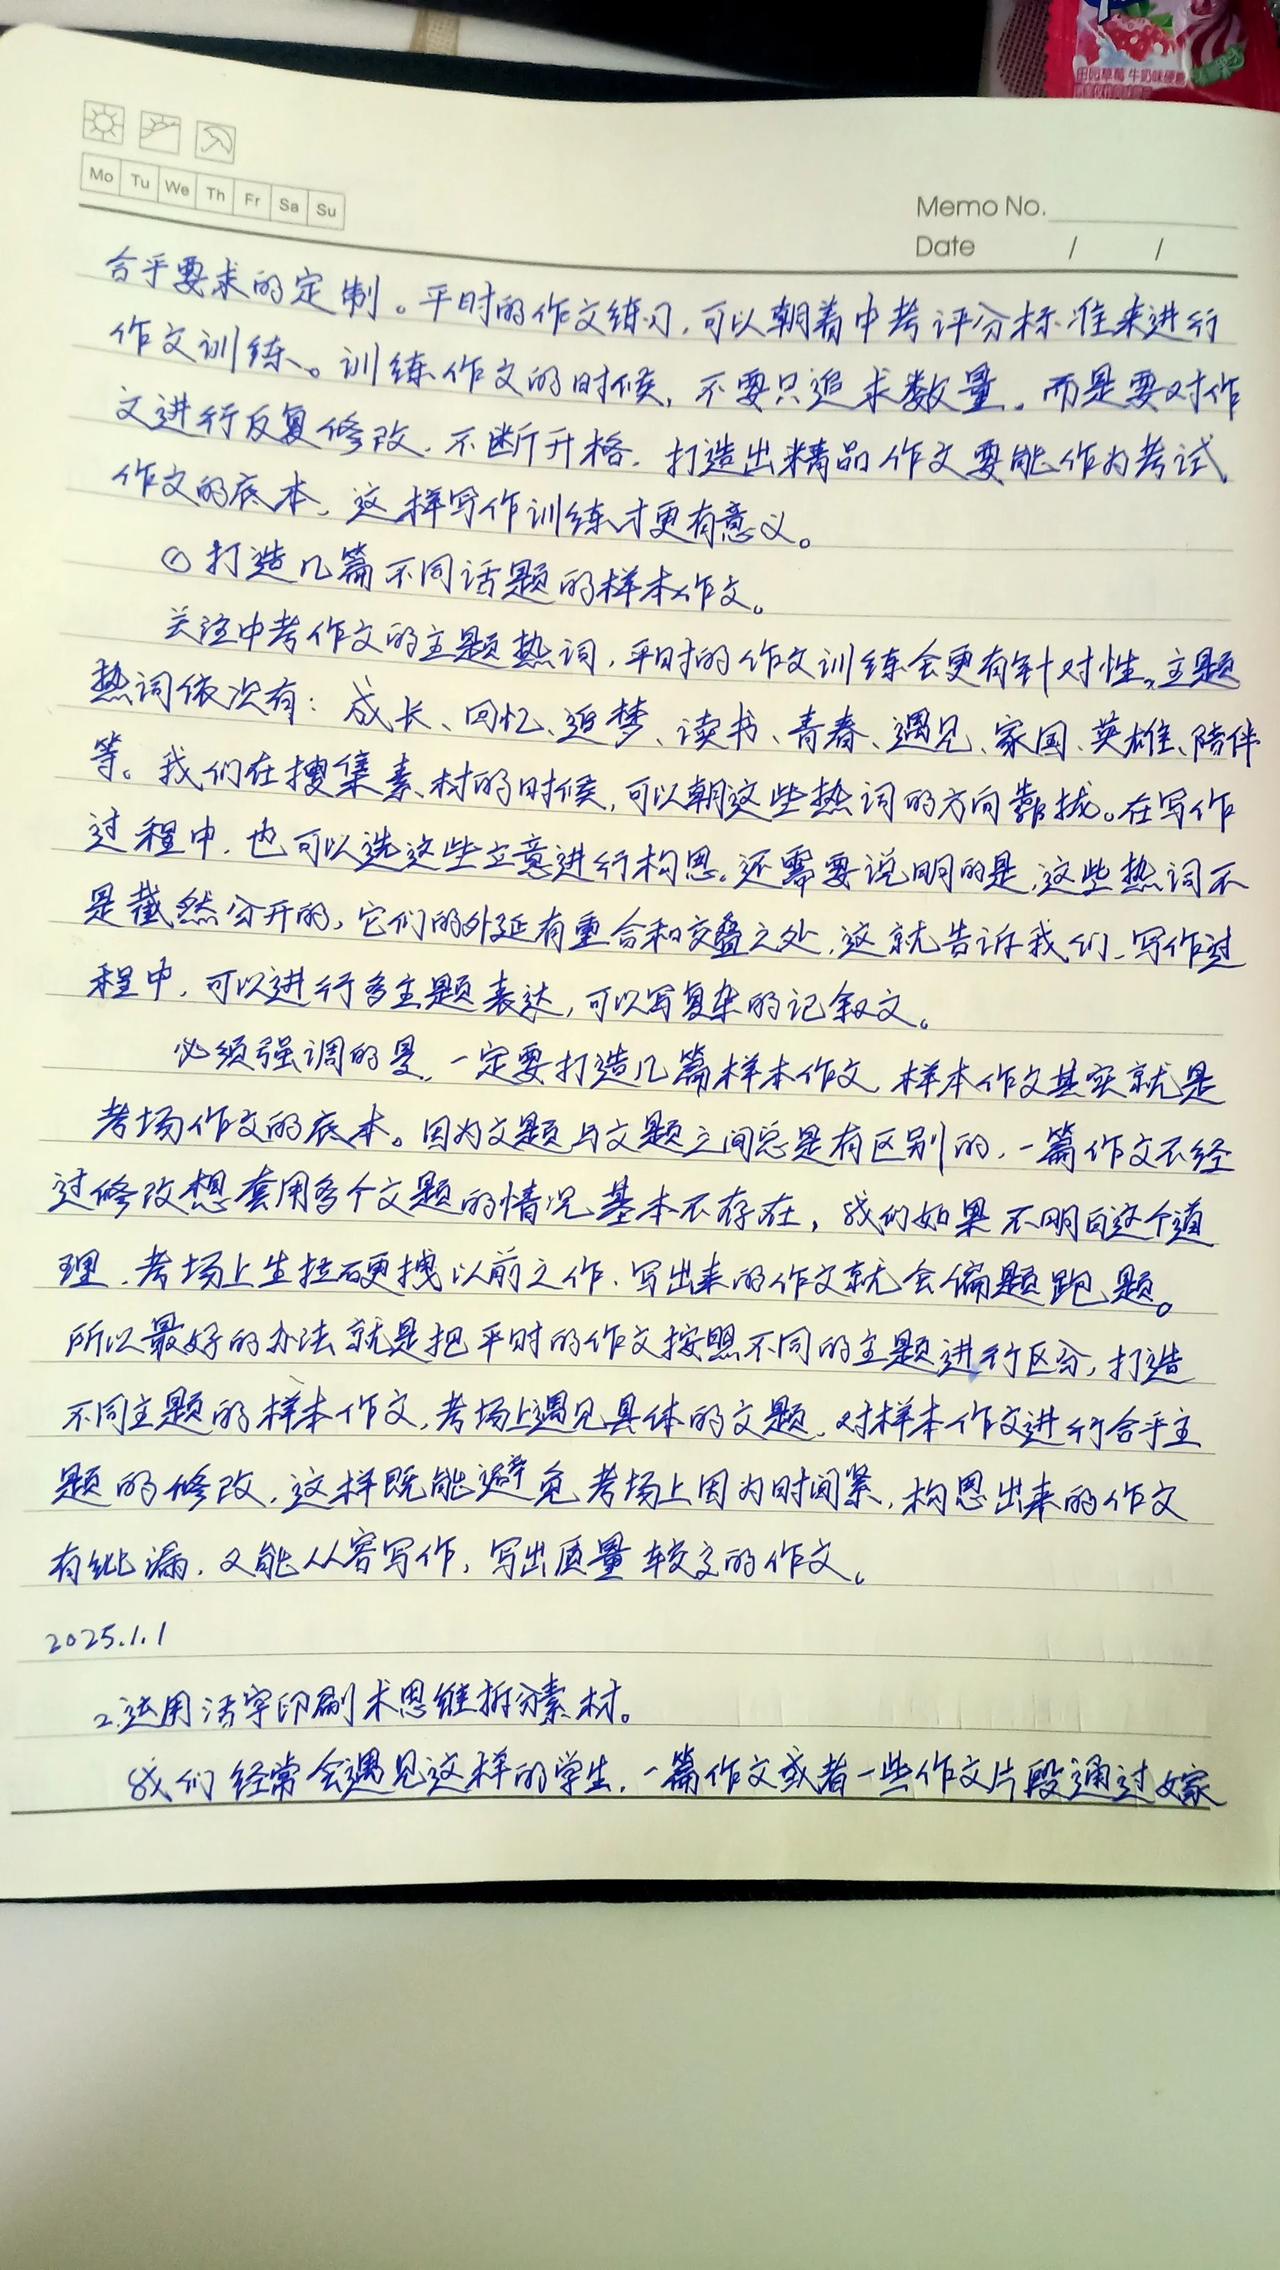 Mo Tu We Th Fr Sa Su
Memo No.
Date / /
合乎要求的定制。平时的作文练习,可以朝着中考评分标准来进行
作文训练。训练作文的时候,不要只追求数量,而是要对作
文进行反复修改,不断升格,打造出精品作文要能作为考试
作文的底本,这样写作训练才更有意义。
①打造几篇不同话题的样本作文。
关注中考作文的主题热词,平时的作文训练会更有针对性,主题
热词依次有:成长、回忆、追梦、读书、青春、遇见、家国、英雄、陪伴
等。我们在搜集素材的时候,可以朝这些热词的方向靠拢。在写作
过程中,也可以选这些立意进行构思。还需要说明的是,这些热词不
是截然分开的,它们的外延有重合和交叠之处,这就告诉我们,写作过
程中,可以进行多主题表达,可以写复杂的记叙文。
必须强调的是,一定要打造几篇样本作文,样本作文其实就是
考场作文的底本。因为文题与文题之间总是有区别的,一篇作文不经
过修改想套用多个文题的情况基本不存在,我们如果不明白这个道
理,考场上生拉硬拽以前之作,写出来的作文就会偏题跑题。
所以最好的办法就是把平时的作文按照不同的主题进行区分,打造
不同主题的样本作文,考场上遇见具体的文题,对样本作文进行合乎主
题的修改,这样既能避免考场上因为时间紧,构思出来的作文
有纰漏,又能从容写作,写出质量较高的作文。
2025.1.1
2.运用活字印刷术思维拆分素材。
我们经常会遇见这样的学生,一篇作文或者一些作文片段通过嫁
田园草莓 牛奶味硬糖